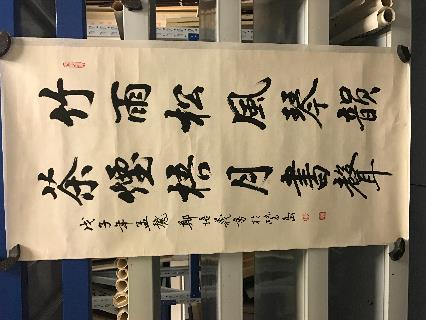 竹雨松風琴韻
茶煙梧月書聲
戊子年孟 鄭 書於